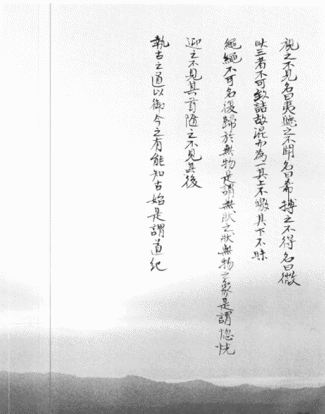 視之不見名曰夷聽之不聞名曰希搏之不得名曰微
此三者不可致詰故混而為一其上不皦其下不昧
繩繩不可名復歸於無物是謂無狀之狀無物之象是謂惚恍
迎之不見其首隨之不見其後
執古之道以御今之有能知古始是謂道紀